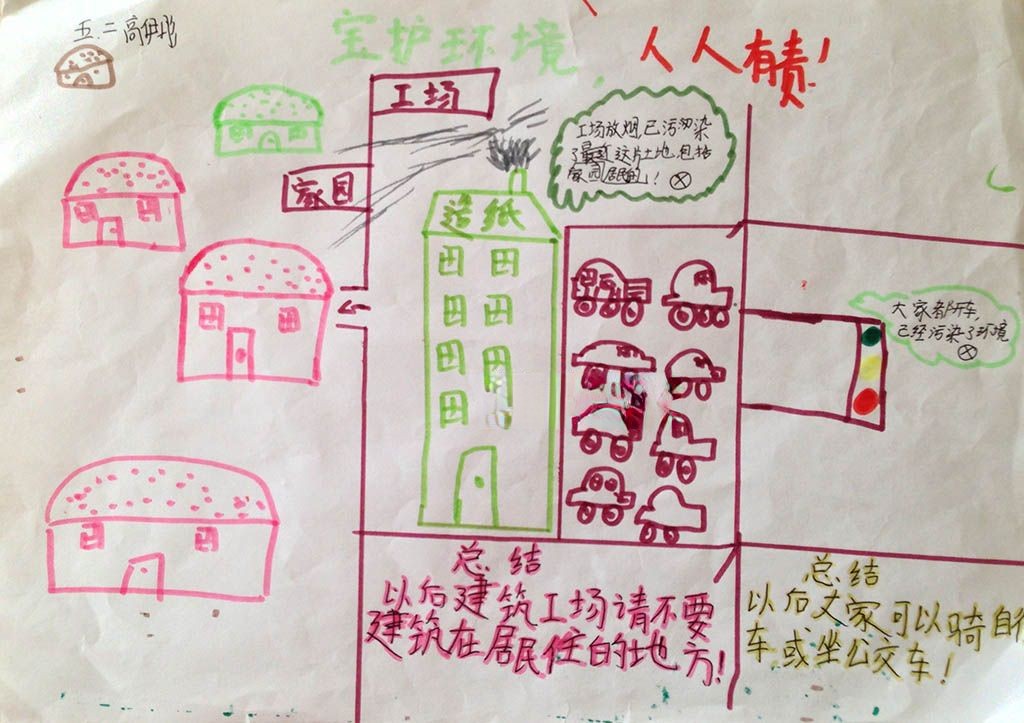 五.二高
宝护环境,人人有责!
工场
家园
造纸
工场放烟,已污染
了最近这片土地,包括
家园居民的!
大家都开车,
已经污染了环境
总结
以后建筑工场请不要
建筑在居民住的地方!
总结
以后大家可以骑自行
车或坐公交车!